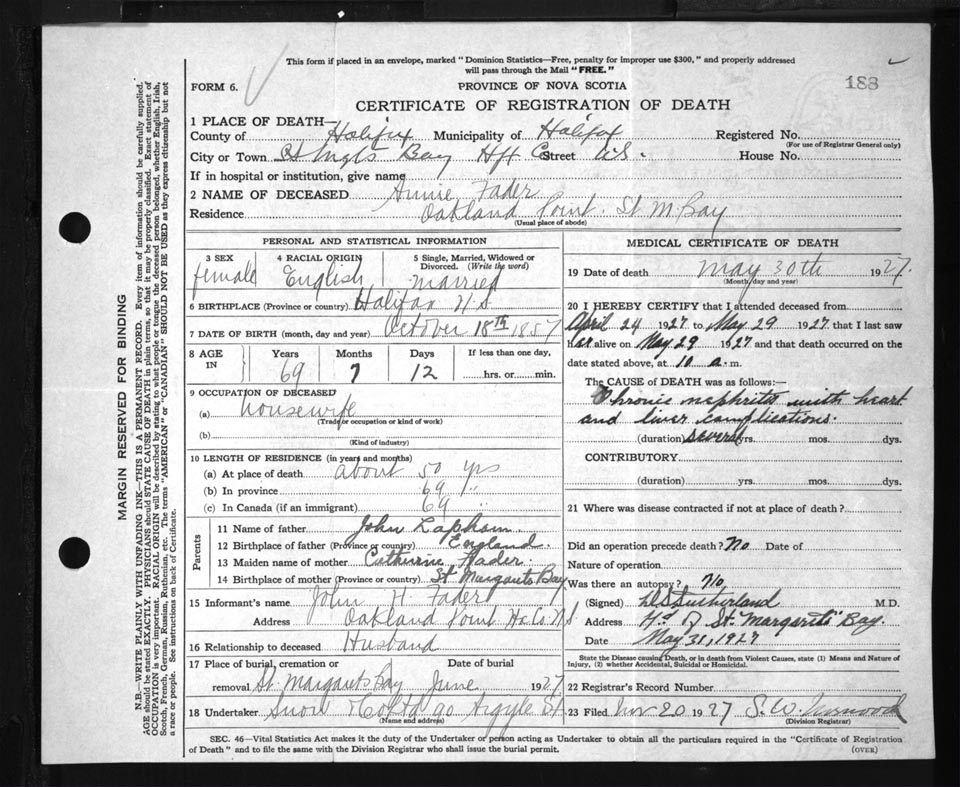 This form if placed in an envelope, marked "Dominion Statistics—Free, penalty for improper use $300," and properly addressed
will pass through the Mail "FREE."
188
FORM 6.
PROVINCE OF NOVA SCOTIA
CERTIFICATE OF REGISTRATION OF DEATH
1 PLACE OF DEATH—
County of Halifax Municipality of Halifax Registered No.
(For use of Registrar General only)
City or Town St Mgts Bay Hfx Co Street N.S. House No.
If in hospital or institution, give name
2 NAME OF DECEASED Annie Fader
Residence Oakland Point. St M. Bay
(Usual place of abode)
PERSONAL AND STATISTICAL INFORMATION
3 SEX 4 RACIAL ORIGIN 5 Single, Married, Widowed or Divorced. (Write the word)
female English married
6 BIRTHPLACE (Province or country) Halifax N.S
7 DATE OF BIRTH (month, day and year) October 18th 1857
8 AGE IN Years Months Days If less than one day,
69 7 12 hrs. or min.
9 OCCUPATION OF DECEASED
(a) housewife
(Trade or occupation or kind of work)
(b)
(Kind of industry)
10 LENGTH OF RESIDENCE (in years and months)
(a) At place of death about 50 yrs
(b) In province 69 "
(c) In Canada (if an immigrant) 69 "
Parents
11 Name of father John Lapham
12 Birthplace of father (Province or country) England.
13 Maiden name of mother Catherine
14 Birthplace of mother (Province or country) St Margarets Bay
15 Informant's name John H. Fader
Address Oakland Point Hx. Co. N.S.
16 Relationship to deceased Husband
17 Place of burial, cremation or Date of burial
removal St. Margarets Bay June 1927
18 Undertaker Snow 90 Argyle St
(Name and address)
MEDICAL CERTIFICATE OF DEATH
19 Date of death May 30th 1927
(Month, day and year)
20 I HEREBY CERTIFY that I attended deceased from
April 24 1927 to May 29 1927. that I last saw
her alive on May 29 1927 and that death occurred on the
date stated above, at 10 a. m.
The CAUSE OF DEATH was as follows:—
Chronic nephritis with heart
and liver complications.
(duration) several yrs. mos. dys.
CONTRIBUTORY
(duration) yrs. mos. dys.
21 Where was disease contracted if not at place of death?
Did an operation precede death? No Date of
Nature of operation
Was there an autopsy? No
(Signed) Sutherland M.D.
Address Hd of St. Margarets Bay.
Date May 31, 1927
State the Disease causing Death, or in death from Violent Causes, state (1) Means and Nature of
Injury, (2) whether Accidental, Suicidal or Homicidal.
22 Registrar's Record Number
23 Filed Nov 20 1927 S. W.
(Division Registrar)
SEC. 46—Vital Statistics Act makes it the duty of the Undertaker or person acting as Undertaker to obtain all the particulars required in the "Certificate of Registration
of Death" and to file the same with the Division Registrar who shall issue the burial permit.
(OVER)
MARGIN RESERVED FOR BINDING
N.B.—WRITE PLAINLY WITH UNFADING INK—THIS IS A PERMANENT RECORD. Every item of information should be carefully supplied.
AGE should be stated EXACTLY. PHYSICIANS should STATE CAUSE OF DEATH in plain terms, so that it may be properly classified. Exact statement of
OCCUPATION is very important. RACIAL ORIGIN will be described by stating to what people or tongue the deceased person belonged, whether English, Irish,
Scotch, French, German, Russian, Ruthenian, etc. The terms "AMERICAN" or "CANADIAN" SHOULD NOT BE USED as they express citizenship but not
a race or people. See instructions on back of Certificate.